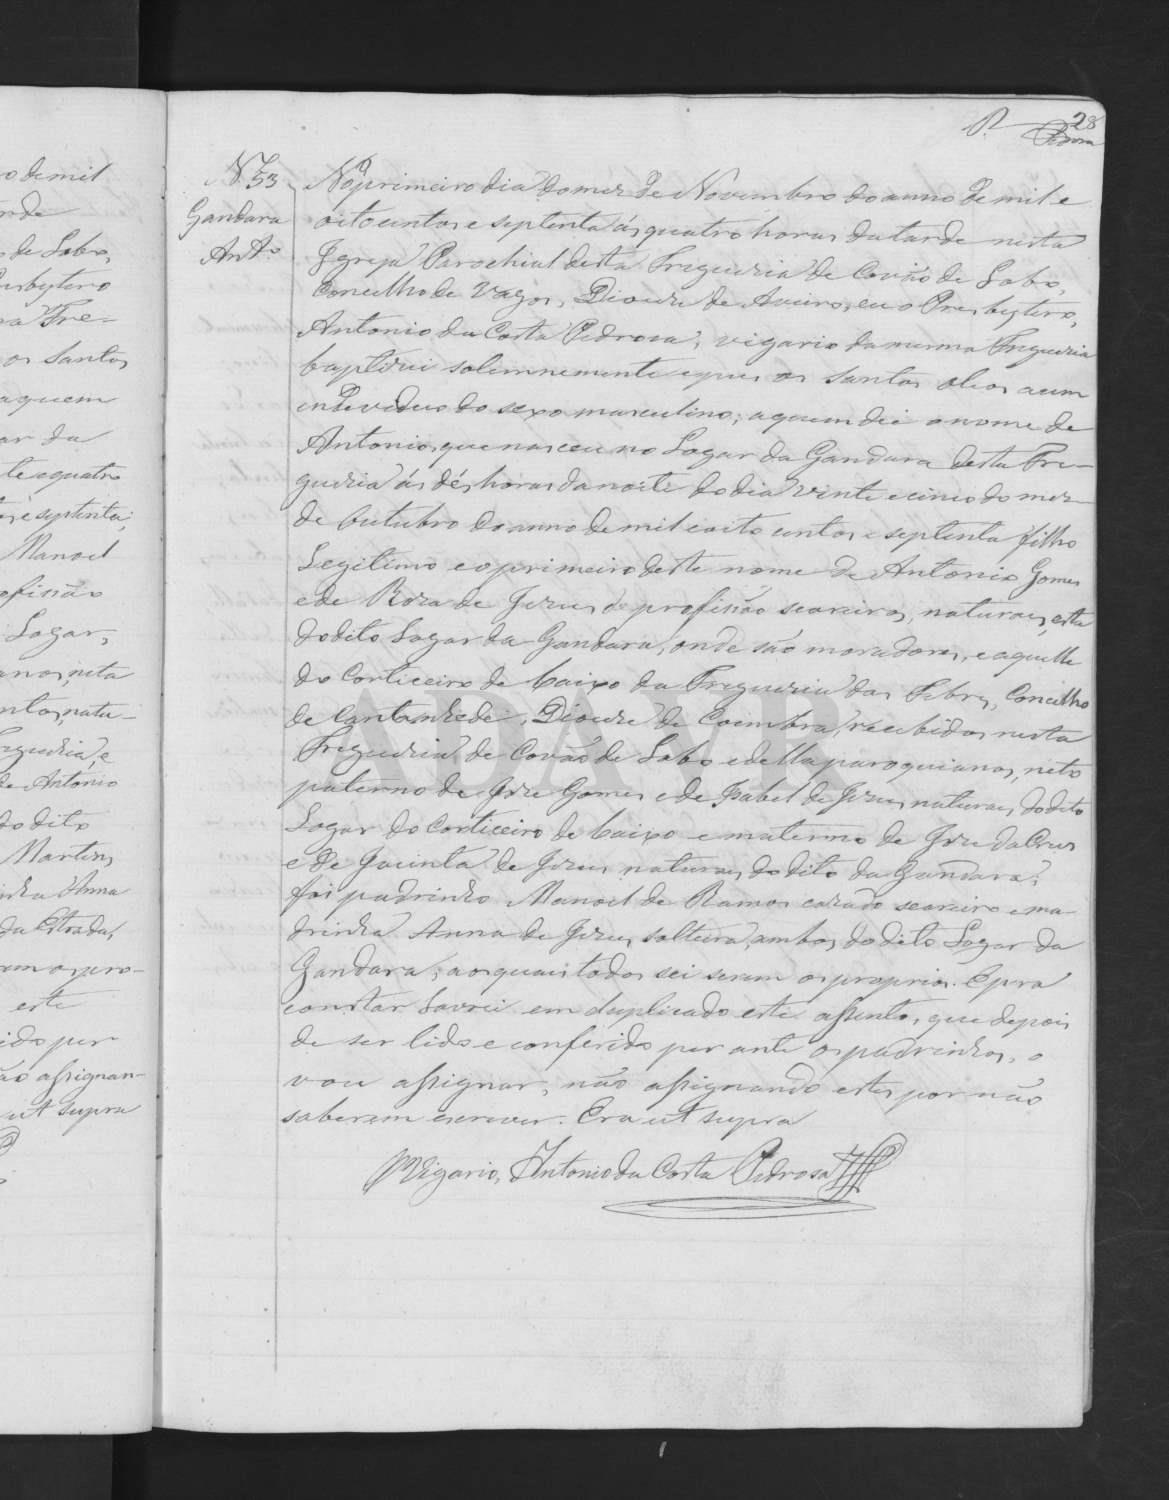 28
P. Pedrosa
N. 53
Gandara
Ant.º
No primeiro dia do mez de Novembro do anno de mil e
oitocentos e septenta ás quatro horas da tarde nesta
Igreja Parochial desta Freguezia de Covão de Lobo,
Concelho de Vagos, Diocese de Aveiro, eu o Presbytero,
Antonio da Costa Pedrosa, vigario da mesma Freguezia
baptizei solemnemente e puz os Santos oleos a um
individuo do sexo masculino; a quem dei o nome de
Antonio, que nasceu no Lugar da Gandara desta Fre-
guezia ás dés horas da noite do dia vinte e cinco do mez
de Outubro do anno de mil e oito centos e septenta filho
Legitimo e o primeiro deste nome de Antonio Gomes
e de Roza de Jezus de profissão seareiros, naturaes, esta
do dito Lugar da Gandara, onde são moradores, e aquelle
do Corticeiro de baixo da Freguezia das Febres, Concelho
de Cantanhede, Diocese de Coimbra, recebidos nesta
Freguezia de Covão de Lobo e della paroquianos, neto
paterno de Joze Gomes e de Izabel de Jezus naturaes do dito
Lugar do Corticeiro de baixo e materno de Joze da Cruz
e de Jacinta de Jezus naturaes do dito da Gandara;
foi padrinho Manoel de Ramos cazado seareiro e ma-
drinha Anna de Jezus, solteira, ambos do dito Lugar da
Gandara, aos quais todos sei serem os proprios. E pra
constar Lavrei em duplicado este assento, que depois
de ser lido e conferido perante os padrinhos, o
vou assignar, não assignando estes por não
saberem escrever. Era ut supra
O Vigario, Antonio da Costa Pedrosa
o de mil
de Lobo,
Presbytero
Fre-
os Santos
a quem
ar da
te e quatro
e septenta,
Manoel
ofissão
Lugar,
anos, neta
ntos, natu-
eguezia, e
de Antonio
do dito
Martins
inha Anna
da Estrada,
rem os pro-
este
ido per
ão assignan-
ut supra
ADAVR